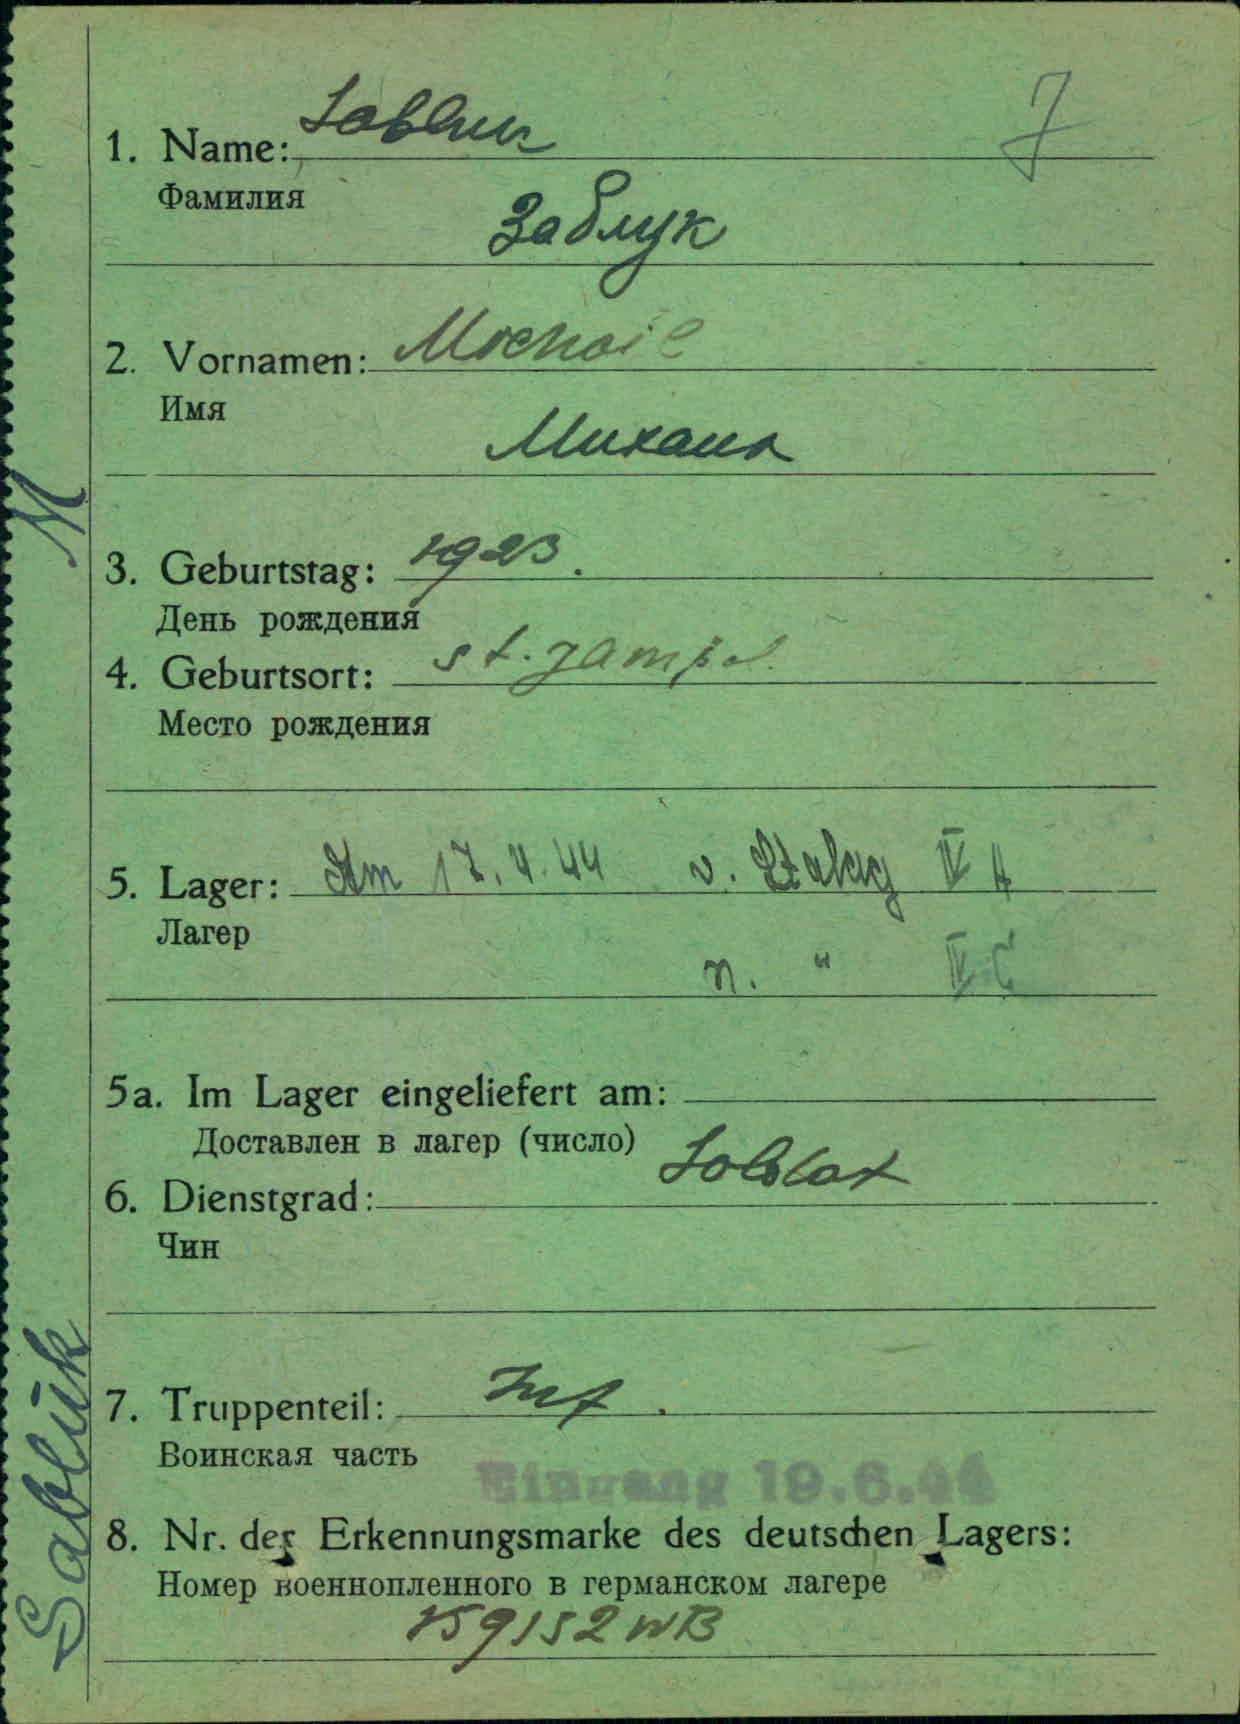 7
1. Name: Sabluk
Фамилия
Заблук
2. Vornamen: Michail
Имя
Михаил
3. Geburtstag: 1923.
День рождения
4. Geburtsort: st. jampol
Место рождения
5. Lager: Am 17.4.44 v. Stalag IV A
Лагер
n. " IV C
5a. Im Lager eingeliefert am:
Доставлен в лагер (число)
6. Dienstgrad: Soldat
Чин
7. Truppenteil: Inf.
Воинская часть
Eingang 19.6.44
8. Nr. der Erkennungsmarke des deutschen Lagers:
Номер военнопленного в германском лагере
159152 IVB
M
Sablūk